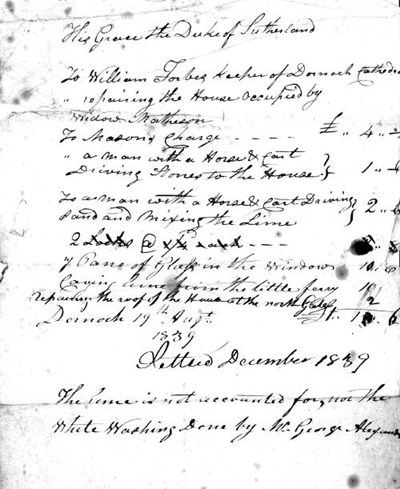 His Grace the Duke of Sutherland
To William Forbes Keeper of Dornoch Cathedral
" repairing the House Occupied by
Widow Matheson
To Masons Charge - - - - £ " 4 "
" a man with a Horse & Cart
Driving Stones to the House } 1 "
To a man with a Horse & Cart Driving
Sand and Mixing the Lime } 2 " 6
2 Locks @ - - -
7 Pans of Glass in the Window 10 " 6
lime from the little ferry 10
Repairing the roof of the House at the north
Dornoch 19th Augt. 1 " 6
1839
Settled December 1839
The lime is not accounted for, nor the
White Washing Done by Mr George Alexander